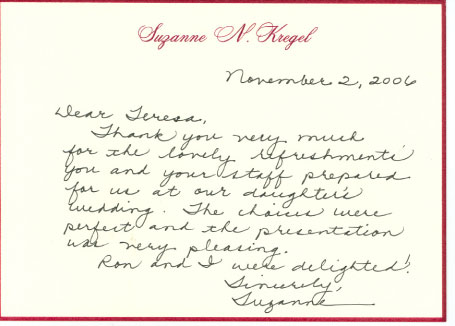 Suzanne N. Kregel
November 2, 2006
Dear Teresa,
Thank you very much
for the lovely refreshments
you and your staff prepared
for us at our daughter's
wedding. The choices were
perfect and the presentation
was very pleasing.
Ron and I were delighted!
Sincerely,
Suzanne